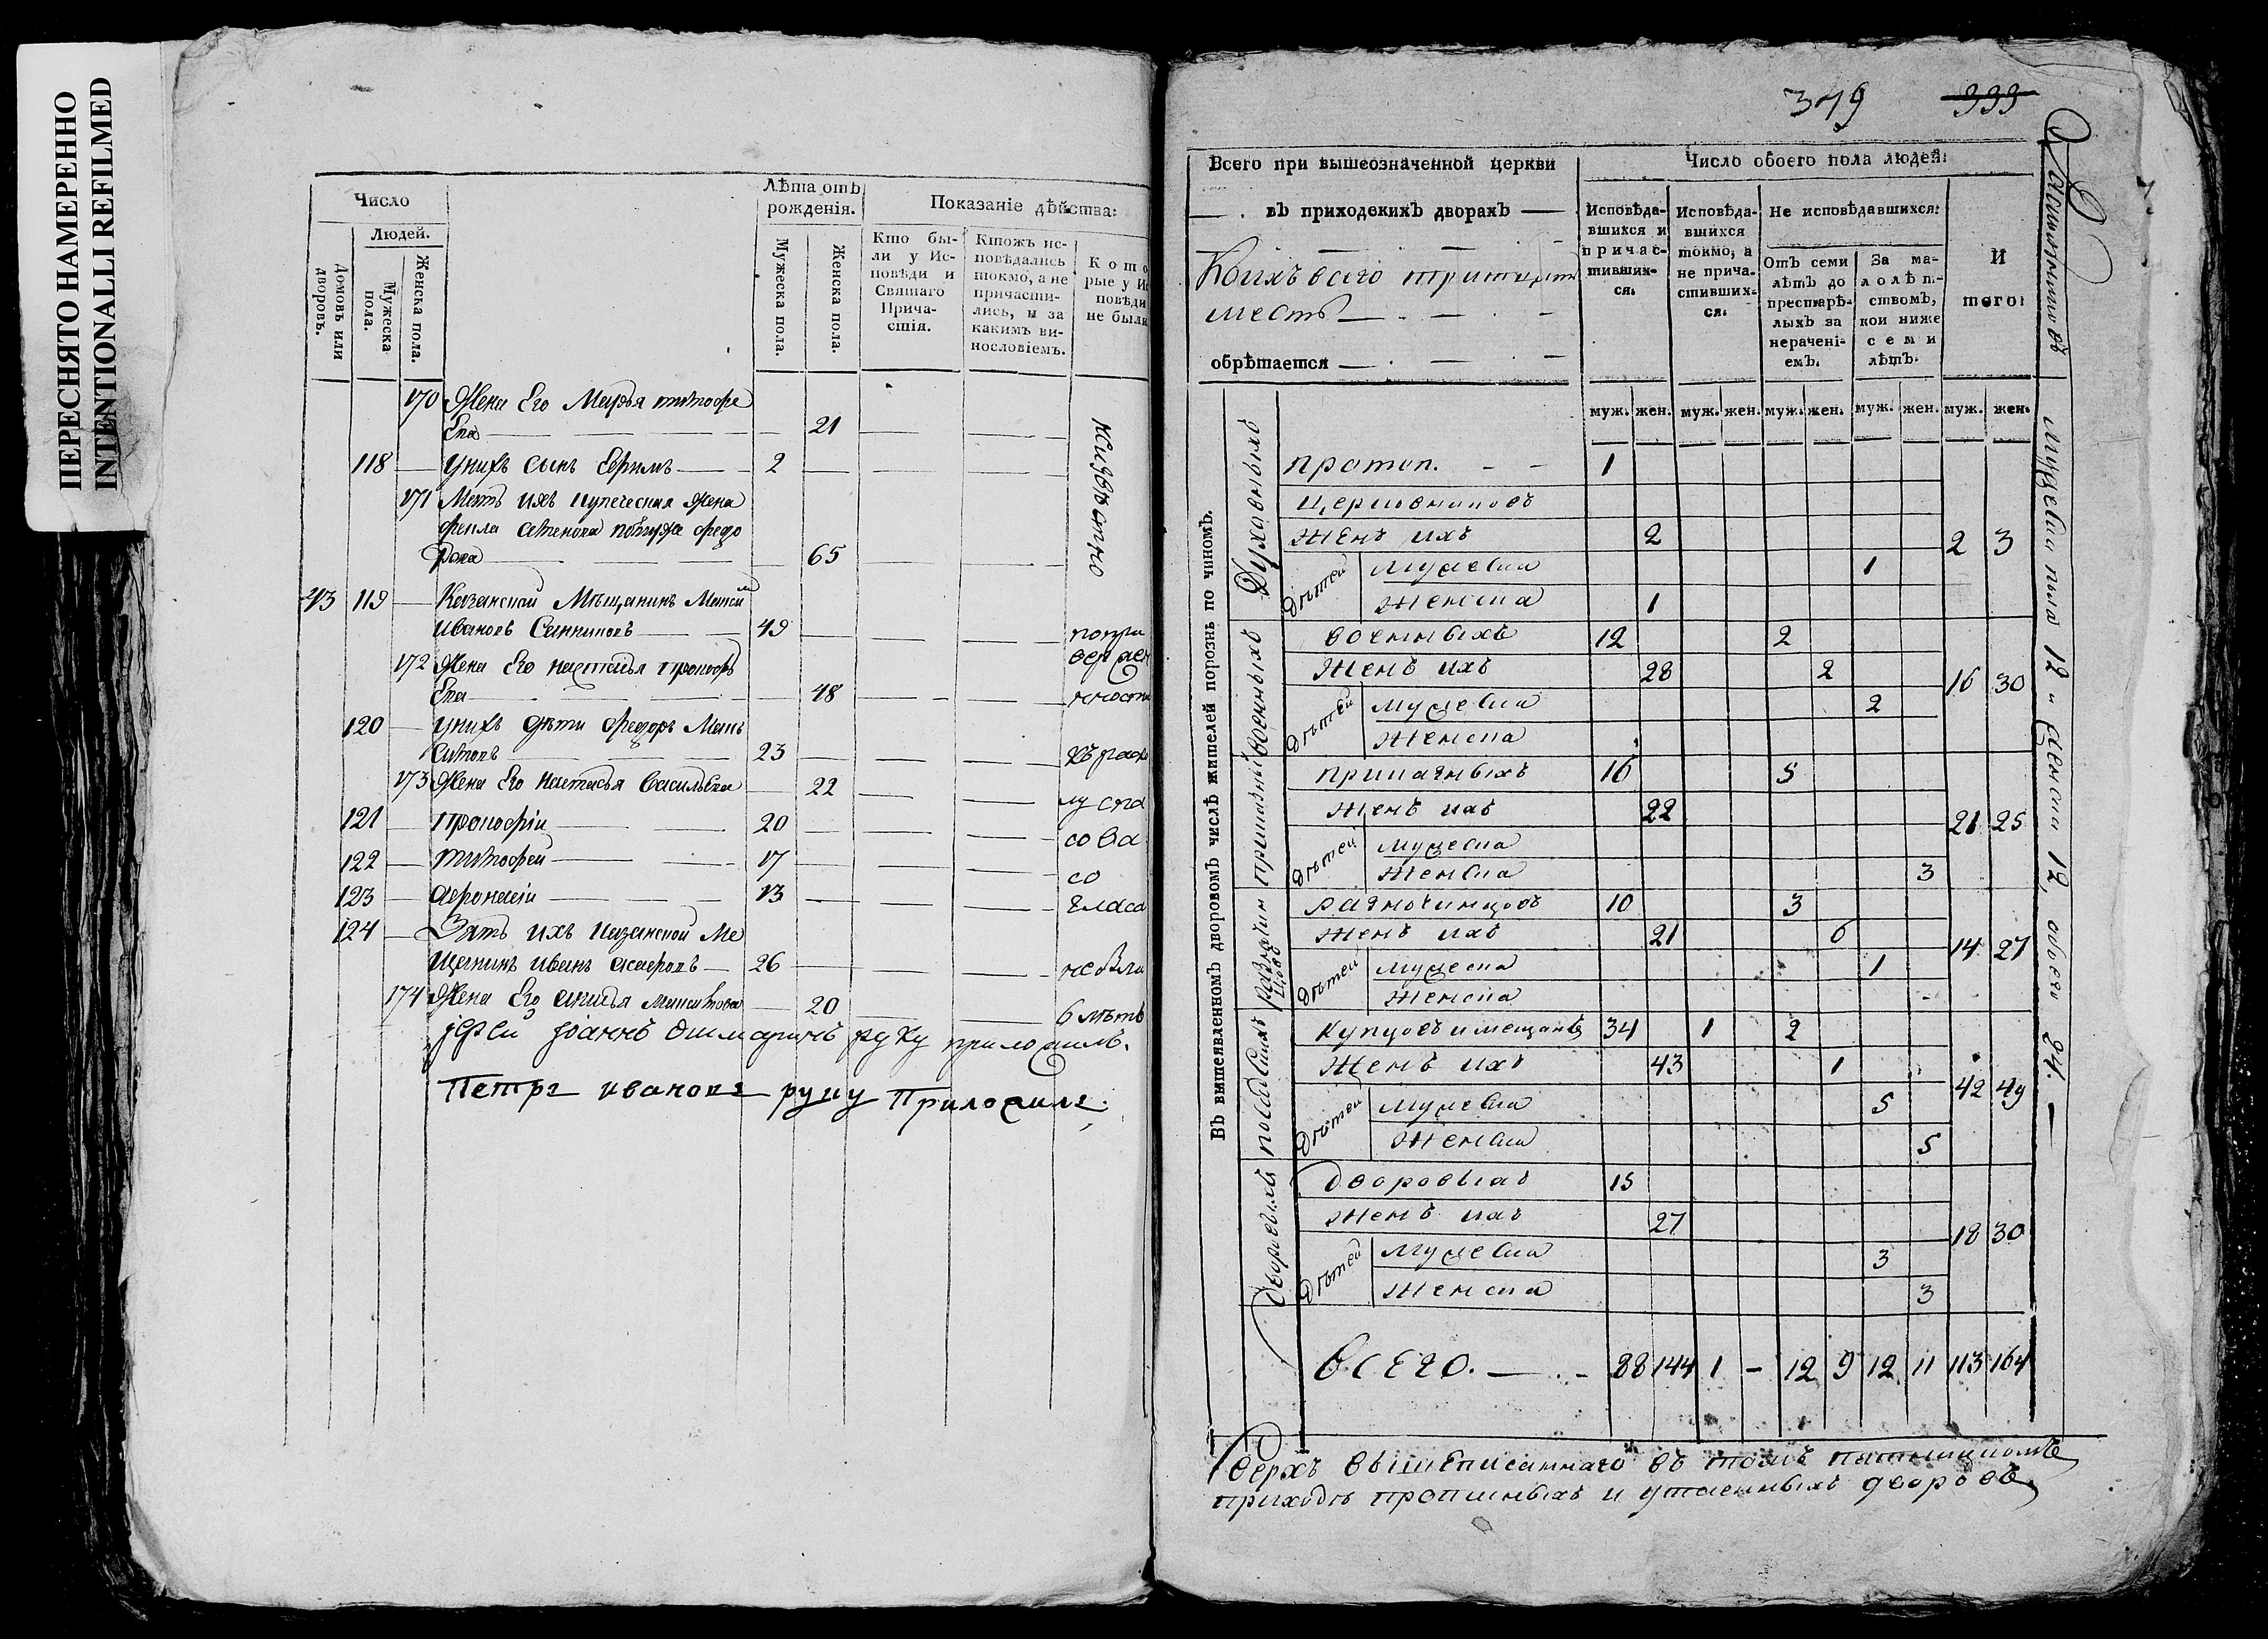 ПЕРЕСНЯТО НАМЕРЕННО
INTENTIONALLI REFILMED
Число
Людей.
Домовъ или дворовъ.
Мужеска пола.
Женска пола.
Лѣта отъ рожденія.
Мужеска пола.
Женска пола.
Показаніе дѣйства:
Кто бы-
ли у Ис-
повѣди и
Святаго
Прича-
стія.
Ктожъ ис-
повѣдались
токмо, а не
причасти-
лись, и за
какимъ ви-
нословіемъ.
К о т о
рые у И
повѣди
не были
170 Жена Его Марья тимофе
Ева 21
118 Унихъ сынъ Ефимъ 2
171 Мать ихъ купеческая жена
Фекла
рова 65
43 119 Казанской Мѣщанинъ
Ивановъ Санниковъ 49
172 Жена Его Настасья прокофь
Ева 48
120 Унихъ дѣти Федоръ
23
173 Жена Его Настасья Васильева 22
121 Прокофіи 20
122 тимофеи 17
123 афонасіи 13
124 Зять ихъ Казанской Ме
щанинъ Иванъ 26
174 Жена Его 20
6 лѣтъ
Іерей Іоаннъ руку приложилъ.
Петръ ивановъ руку Приложилъ.
379 333
Всего при вышеозначенной церкви
въ приходскихъ дворахъ
Коихъ всего
мѣстъ
обрѣтается
Число обоего пола людей:
Исповѣда-
вшихся и
п р и ч а с-
тивших-
ся.
Исповѣда-
вшихся
токмо, а
не прича-
стивших-
ся.
Не исповѣдавшихся:
Отъ семи
лѣтъ до
престарѣ-
лыхъ за
нерачені-
емъ.
За ма-
л о л ѣ т-
ствомъ,
кои ниже
с е м и
лѣтъ.
И
того:
муж. жен. муж. жен. муж. жен. муж. жен. муж. жен.
Въ вышеявленномъ дворовомъ числѣ жителей порознь по чиномъ.
Духовныхъ
протоп. 1
Церковниковъ
Женъ ихъ 2 2 3
Дѣтей
Мужеска 1
Женска 1
Военныхъ
военныхъ 12 2
Женъ ихъ 28 2 16 30
Дѣтей
Мужеска 2
Женска
приказны
приказныхъ 16 5
Женъ ихъ 22 21 25
Дѣтей
Мужеска
Женска 3
Разночинцовъ
разночинцовъ 10 3
Женъ ихъ 21 6 14 27
Дѣтей
Мужеска 1
Женска
посадскихъ
Купцовъ и мещанъ 34 1 2
Женъ ихъ 43 1 42 49
Дѣтей
Мужеска 5
Женска 5
Дворовыхъ
Дворовыхъ 15
Женъ ихъ 27 18 30
Дѣтей
Мужеска 3
Женска 3
Всего. 88 144 1 - 12 9 12 11 113 164
Сверхъ вышеписаннаго въ томъ
приходѣ прописныхъ и утаенныхъ дворовъ
мужеска пола 12 и женска 12, обоего 24.